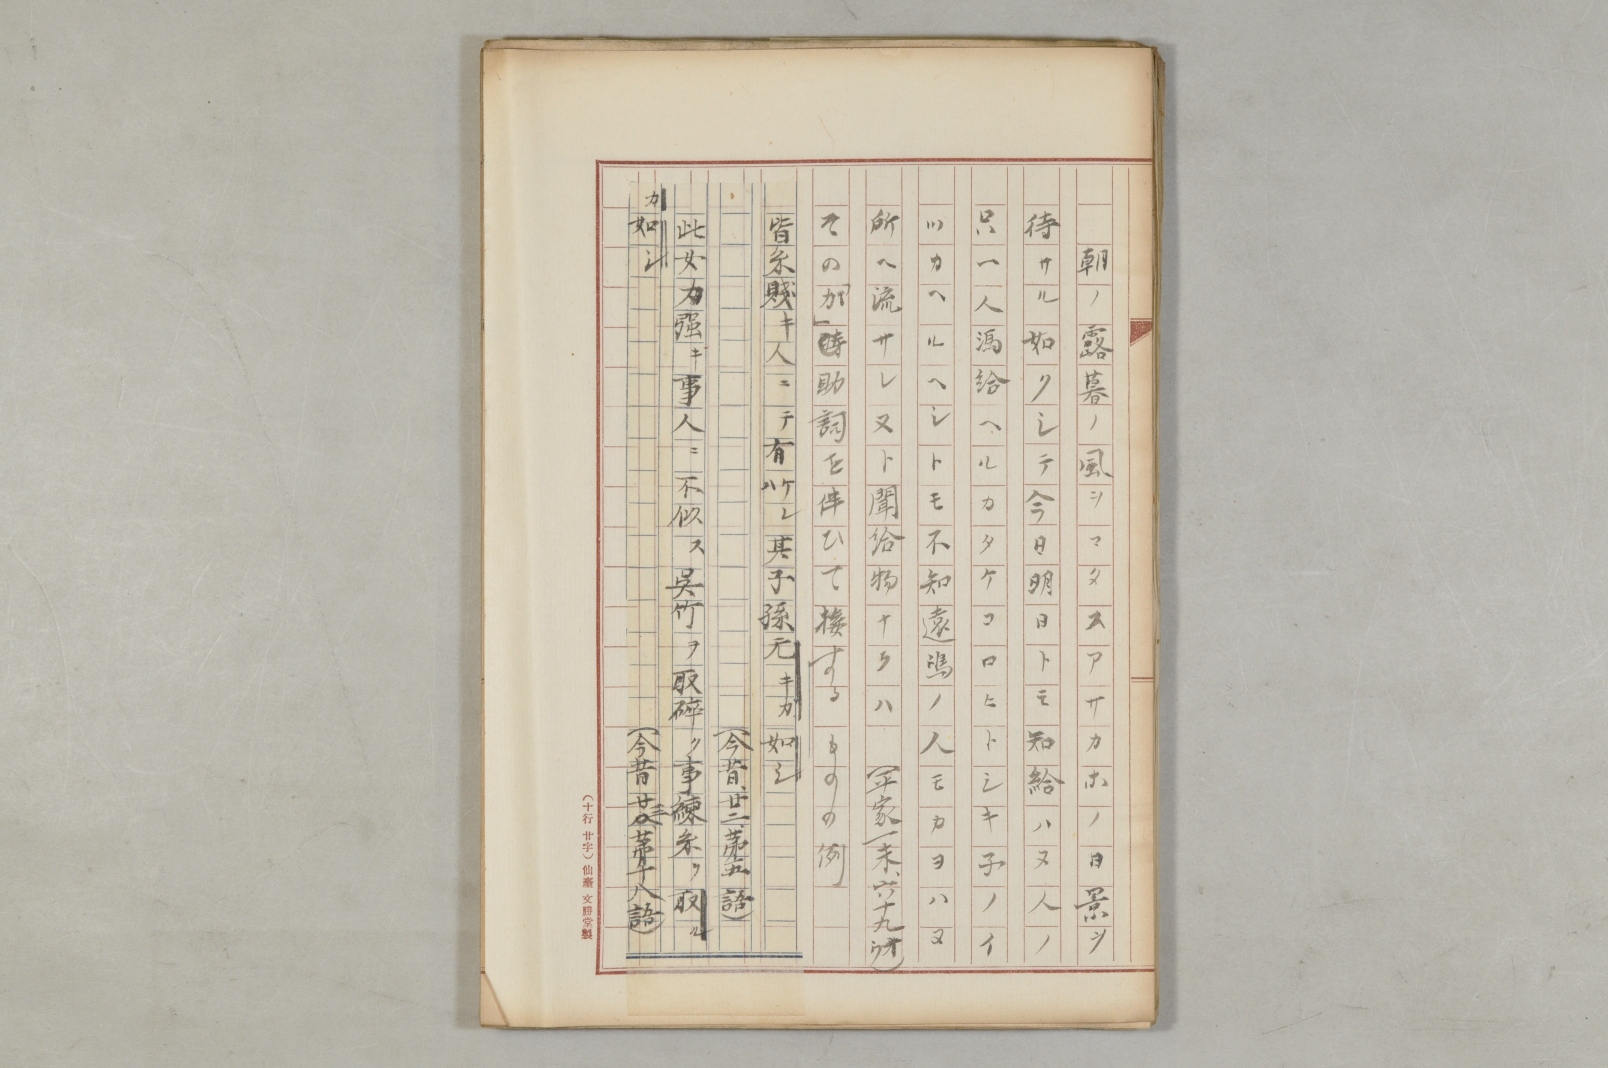 朝ノ露暮ノ風ヲマタスアサカホノ日景ヲ
待サル如クシテ今日明日トモ知給ハヌ人ノ
只一人馮給ヘルカタケコロヒトシキ子ノイ
ツカヘルヘシトモ不知遠嶋ノ人モカヨハヌ
所ヘ流サレヌト聞給物ナラハ (平家一末、六十九
その「が」助詞を伴ひて接するものの例
皆糸賤キ人ニテ有ケレハ其子孫无キカ如シ
(今昔、廿二、第五語)
此女力強キ事人ニ不似ス呉竹ヲ取砕ク事練糸ヲ取ル
カ如シ (今昔廿三第十八語)
(十行 廿字) 仙臺 文勝堂製